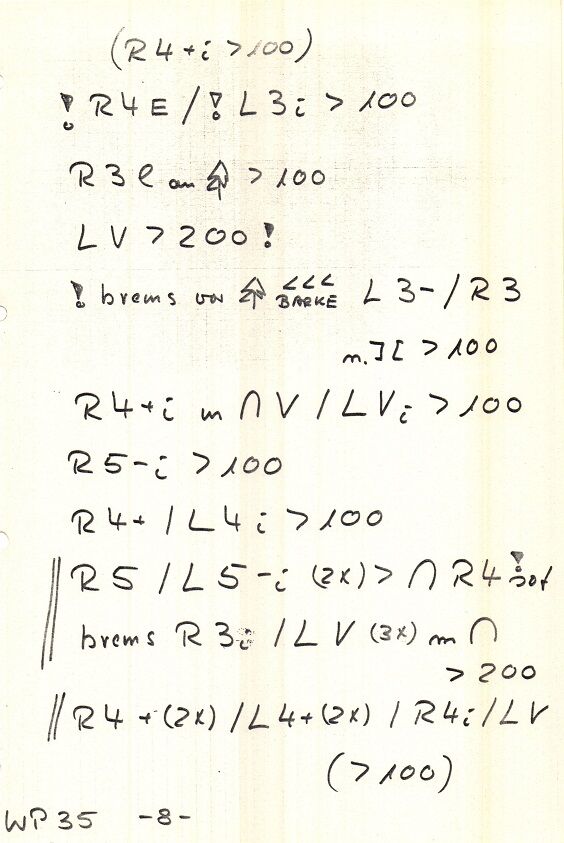 (R4+i >100)
! R4E / ! L3i > 100
R3 l an > 100
LV > 200 !
! brems vor <<< BARKE L3- / R3
n. ][ > 100
R4+i m ∩ V / LVi > 100
R5-i > 100
R4+ / L4i > 100
|| R5 / L5-i (2x) > ∩ R4 ! sof
brems R3i / LV (3x) m ∩
> 200
|| R4+(2x) / L4+(2x) / R4i / LV
(>100)
WP35 -8-